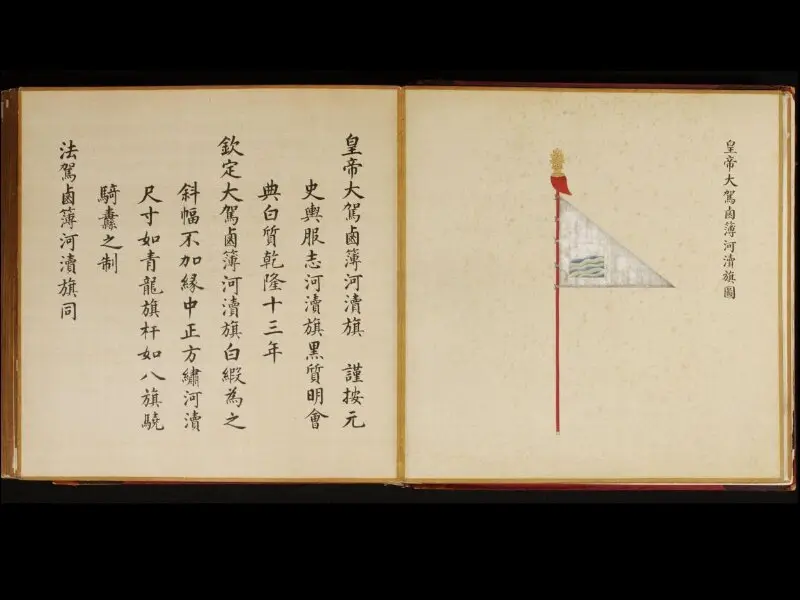 皇帝大駕鹵簿河瀆旗圖
皇帝大駕鹵簿河瀆旗 謹按元
史輿服志河瀆旗黑質明會
典白質乾隆十三年
欽定大駕鹵簿河瀆旗白緞為之
斜幅不加緣中正方繡河瀆
尺寸如青龍旗杆如八旗驍
騎纛之制
法駕鹵簿河瀆旗同